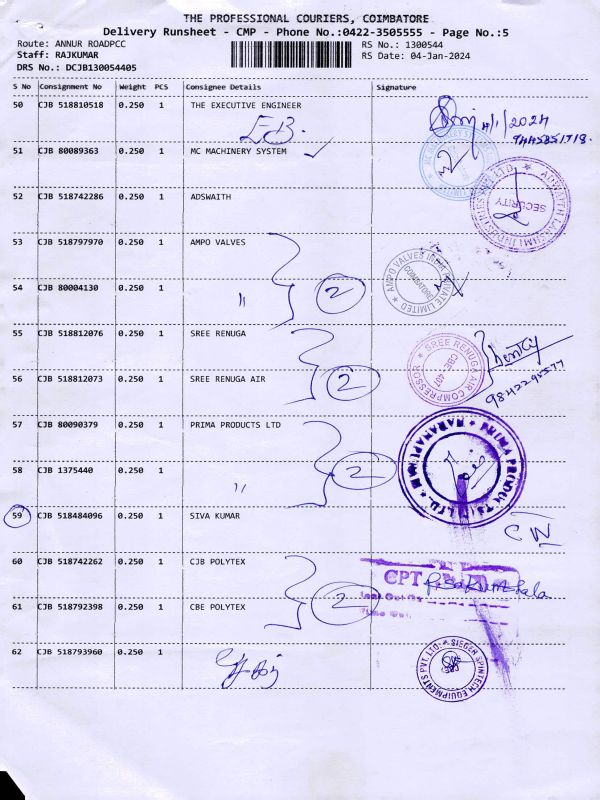 THE PROFESSIONAL COURIERS, COIMBATORE
Delivery Runsheet - CMP - Phone No.:0422-3505555 - Page No.:5
Route: ANNUR ROADPCC
Staff: RAJKUMAR
DRS No.: DCJB130054405
RS No.: 1300544
RS Date: 04-Jan-2024
S No Consignment No Weight PCS Consignee Details Signature
50 CJB 518810518 0.250 1 THE EXECUTIVE ENGINEER
EB
4/1/2024
9445851718
51 CJB 80089363 0.250 1 MC MACHINERY SYSTEM
52 CJB 518742286 0.250 1 ADSWAITH
SECURITY
53 CJB 518797970 0.250 1 AMPO VALVES
54 CJB 80004130 0.250 1 " 2
AMPO VALVES INDIA PRIVATE LIMITED
COIMBATORE
55 CJB 518812076 0.250 1 SREE RENUGA
56 CJB 518812073 0.250 1 SREE RENUGA AIR 2
SREE RENUGA AIR COMPRESSOR
CBE - 407
9842295577
57 CJB 80090379 0.250 1 PRIMA PRODUCTS LTD
58 CJB 1375440 0.250 1 " 2
PRIMA PRODUCTS (P) LTD.
59 CJB 518484096 0.250 1 SIVA KUMAR
CW
60 CJB 518742262 0.250 1 CJB POLYTEX
CPT
61 CJB 518792398 0.250 1 CBE POLYTEX 2
62 CJB 518793960 0.250 1
SIEGER SPINTECH EQUIPMENTS PVT. LTD.